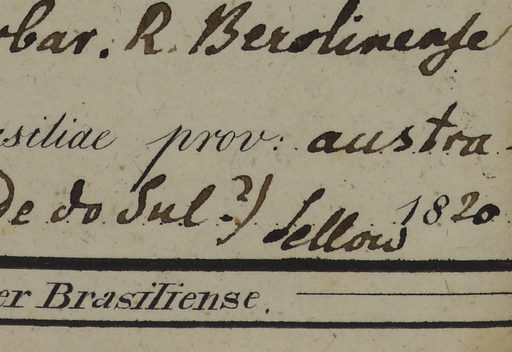 rbar. R. Berolinense
siliae prov: austra-
de do Sul?) Sellow 1820
er Brasiliense.